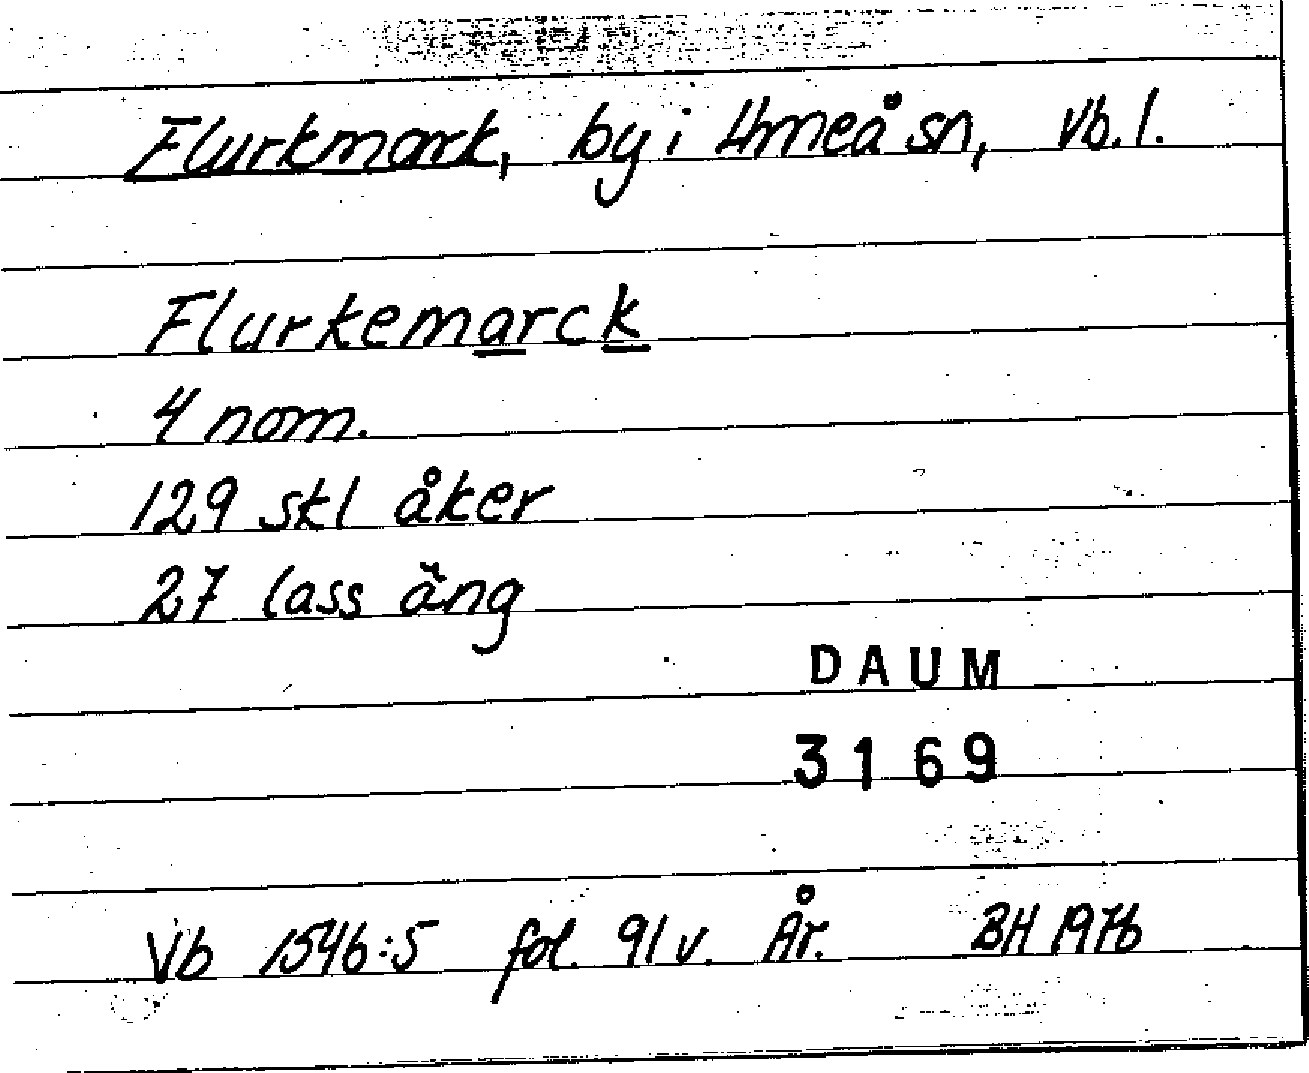 Flurkmark, by i Umeå sn, Vb. l.
Flurkemarck
4 nom.
129 skl åker
27 lass äng
DAUM
3169
Vb 1546:5 fol. 91 v. År. BH 1976